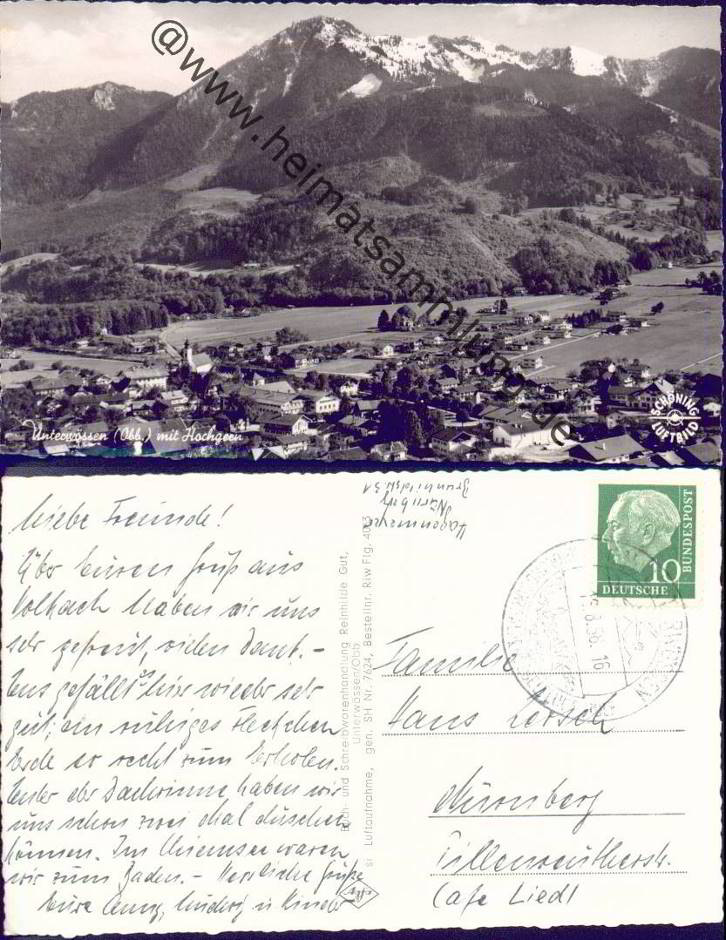 @www.heimatsammlung.de
Unterwössen (Obb.) mit Hochgern
SCHÖNING
LUFTBILD
Liebe Freunde!
Über Euren Gruß aus
Volkach haben wir uns
sehr gefreut, vielen Dank. -
Uns gefällt's hier wieder sehr
gut, ein ruhiges Fleckchen
Erde so recht zum Erholen.
Unter der Dachrinne haben wir
uns schon zwei Mal duschen
können. Im Chiemsee waren
wir zum Baden. - Herzliche Grüße
Eure Ludwig u. Kinder
Buch- und Schreibwarenhandlung Reinhilde Gut,
Unterwössen/Obb.
Luftaufnahme, gen. SH Nr. 7624, Bestellnr. Rlw Flg.
Nürnberg
10
DEUTSCHE
BUNDESPOST
Familie
Hans
Nürnberg
Pillenreutherstr.
(Cafe Liedl